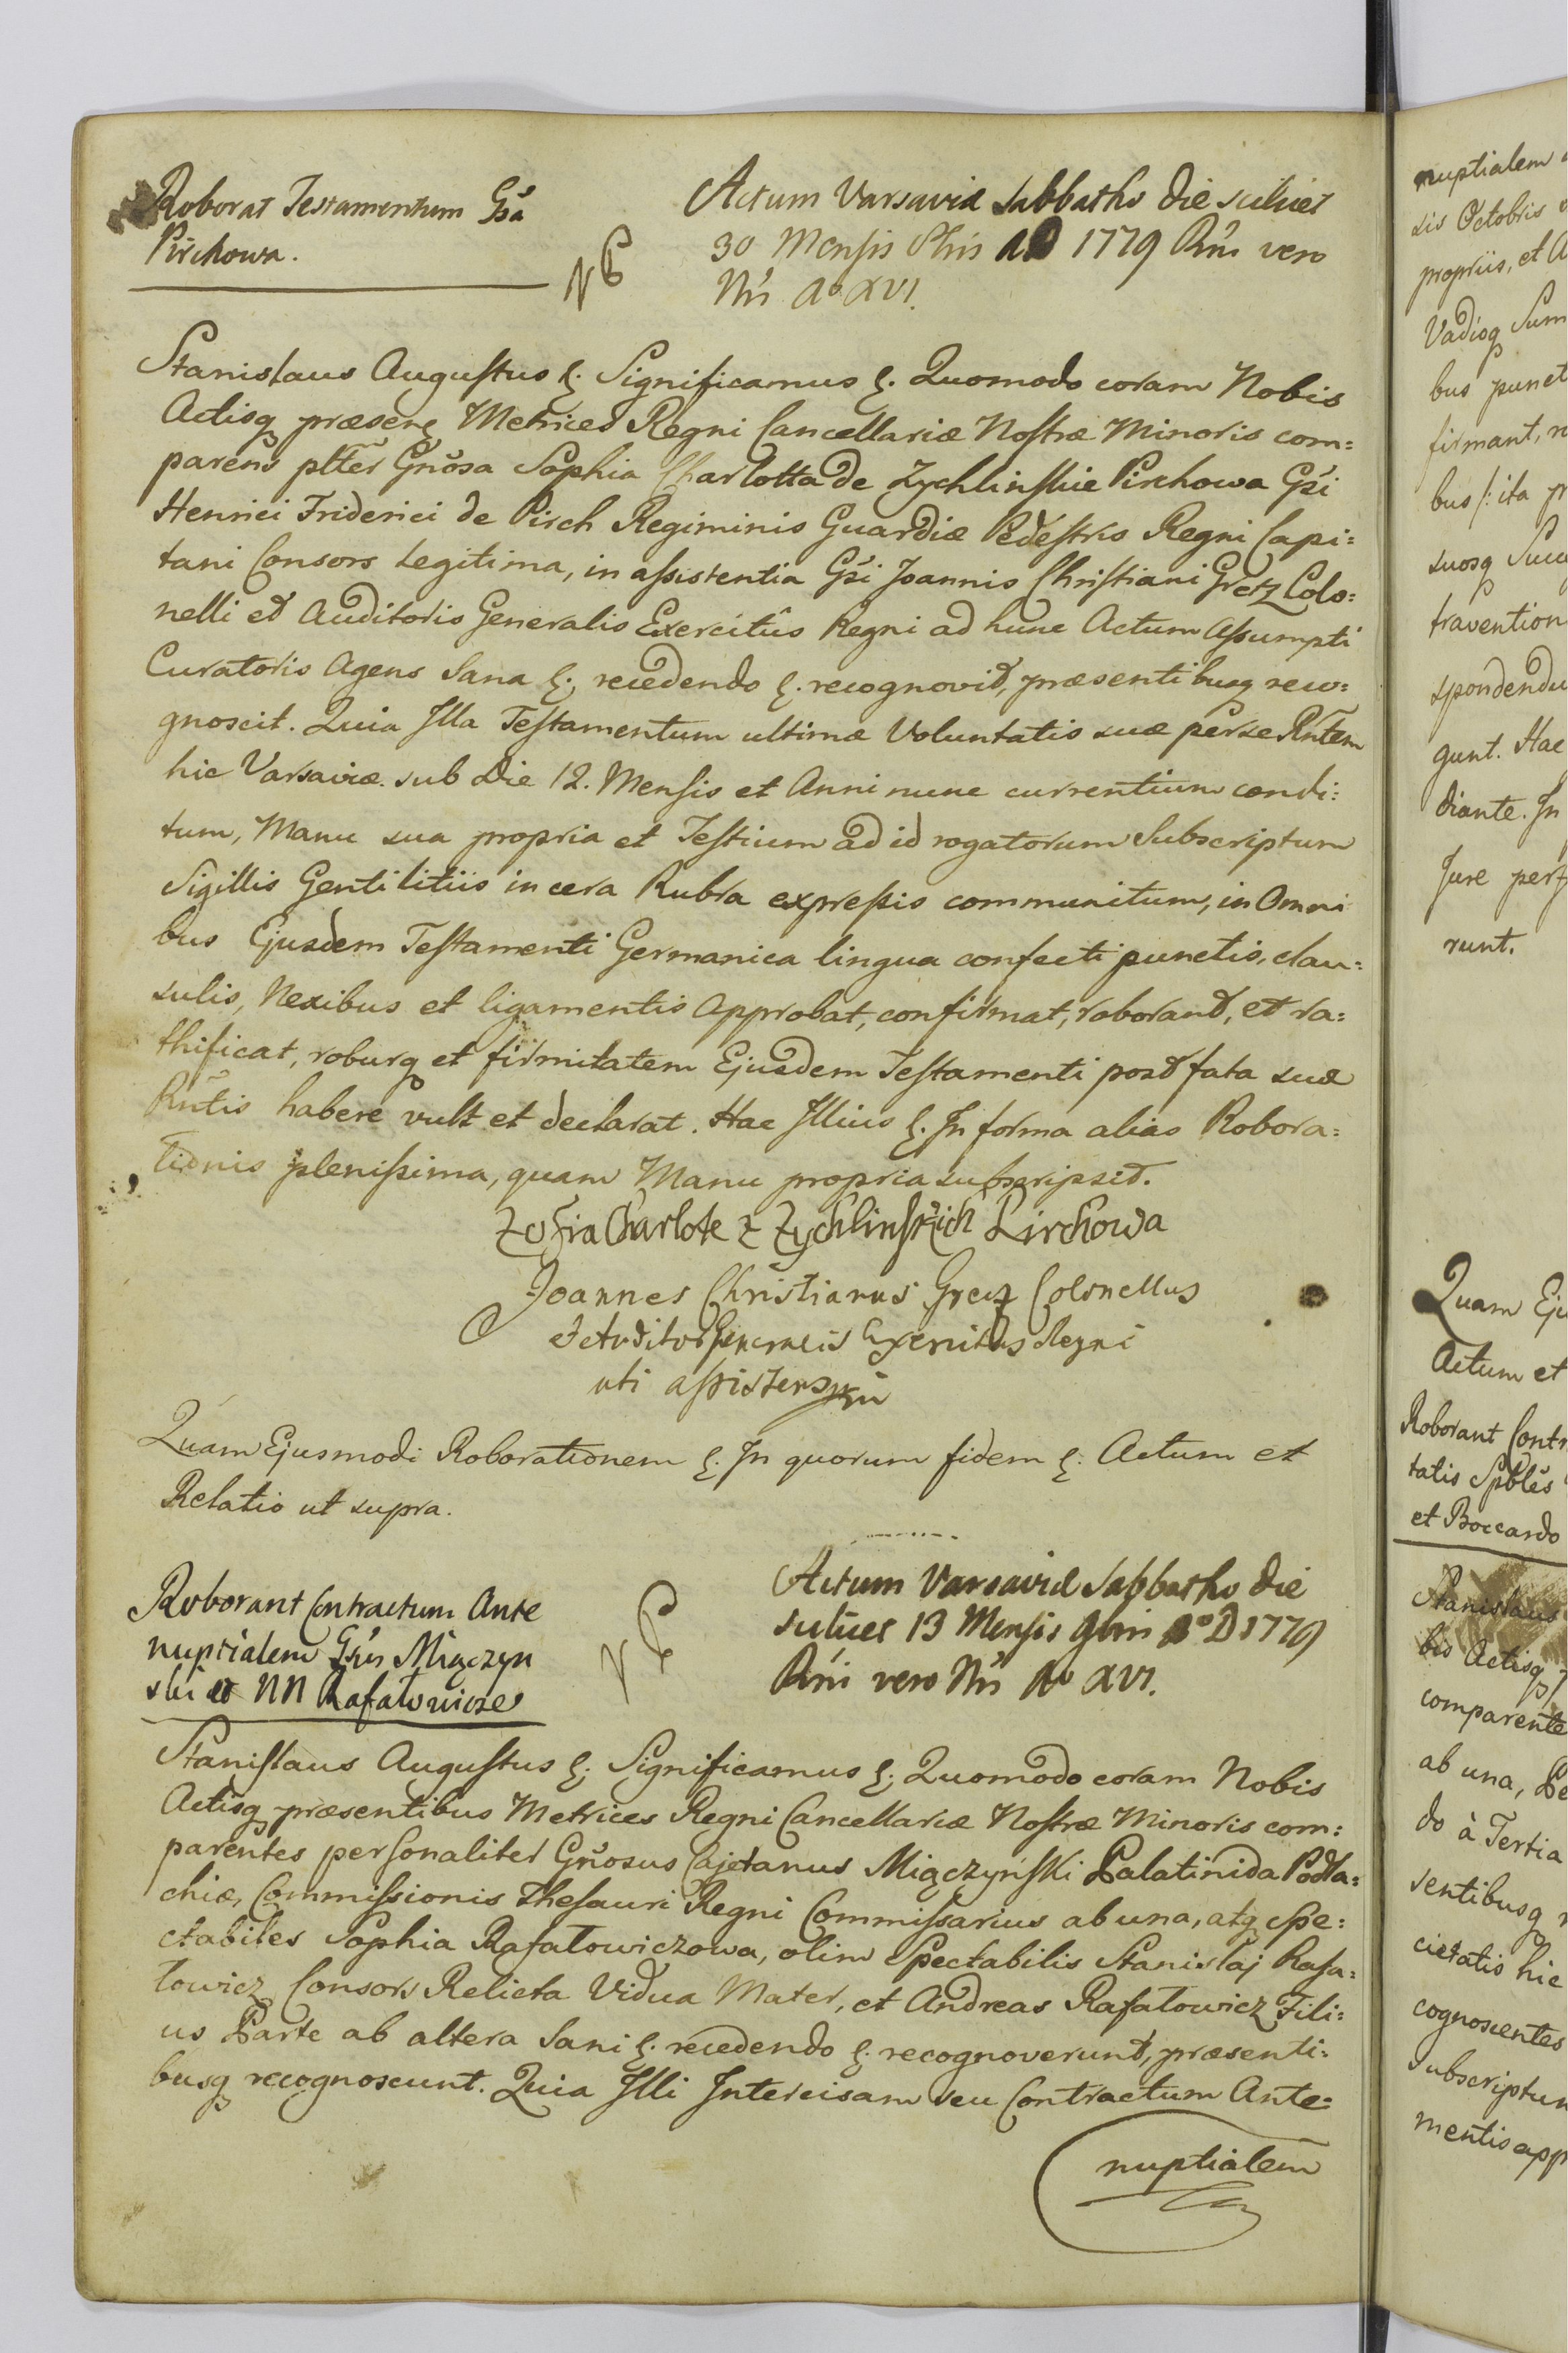 Roborat Testamentum Gsa
Pirchowa.
NB
Actum Varsaviæ Sabbatho die scilicet
30 Mensis 8bris AD 1779 Rni vero
Nri Ao XVI.
Stanislaus Augustus &. Significamus &. Quomodo coram Nobis
Actisq præsene Metrices Regni Cancellariæ Nostræ Minoris com=
parens pltter Gnosa Sophia Charlotta de Zychlinskie Pirchowa Gsi
Henrici Friderici de Pirch Regiminis Guardiæ Pedestris Regni Capi=
tani Consors Legitima, in assistentia Gsi Joannis Christiani Gretz Colo=
nelli et Auditoris Generalis Exercitûs Regni ad hunc Actum Assumpti
Curatoris Agens Sana &., recedendo &. recognovit, præsentibusq reco=
gnoscit. Quia Illa Testamentum ultimæ Voluntatis suæ per se Rntem
hic Varsaviæ sub Die 12. Mensis et Anni nunc currentium condi=
tum, Manu sua propria et Testium ad id rogatorum Subscriptum
Sigillis Gentilitiis in cera Rubra expressis communitum, in Omni
bus Ejusdem Testamenti Germanica lingua confecti punctis, clau=
sulis, Nexibus et ligamentis Approbat, confirmat, roborand, et ra=
thificat, roburq et firmitatem Ejusdem Testamenti post fata sua
Rntis habere vult et declarat. Hac Illius &. In forma alias Robora=
tionis plenissima, quam Manu propria subscripsit.
Zofia Charlote z Zychlinskich Pirchowa
Joannes Christianus Gretz Colonellus
et Auditor Generalis Exercitus Regni
uti assistens
Quam Ejusmodi Roborationem &. In quorum fidem &. Actum et
Relatio ut supra.
Roborant Contractum Ante
nuptialem Gsus Miączyn
ski et NN Rafałowicze
NB
Actum Varsaviæ Sabbatho die
scilicet 13 Mensis 9bris Ao D 1779
Rni vero Nri Ao XVI.
Stanislaus Augustus &. Significamus &. Quomodo coram Nobis
Actisq præsentibus Metrices Regni Cancellariæ Nostræ Minoris com=
parentes personaliter Gnosus Cajetanus Miączyński Palatinida Podla=
chiæ, Commissionis Thesauri Regni Commissarius ab una, atq Spe=
ctabiles Sophia Rafałowiczowa, olim Spectabilis Stanislaj Rafa=
łowicz Consors Relicta Vidua Mater, et Andreas Rafałowicz Fili=
us Parte ab altera Sani &. recedendo &. recognoverunt, præsenti=
busq recognoscunt. Quia Illi Intercisam seu Contractum Ante=
nuptialem
nuptialem
sis Octobris
propriis, et
Vadioq Sum
bus punct
firmant, r
bus /: ita p
suosq Succ
travention
spondendu
gunt. Hac
diante. In
Jure perf
runt.
Quam Eju
Actum et
Roborant Contr
tatis Spbles
et Boccardo
Stanislaus
bis Actisq p
comparente
ab una, Be
do à Tertia
sentibusq r
cietatis hic
cognoscentes
subscriptum
mentis app